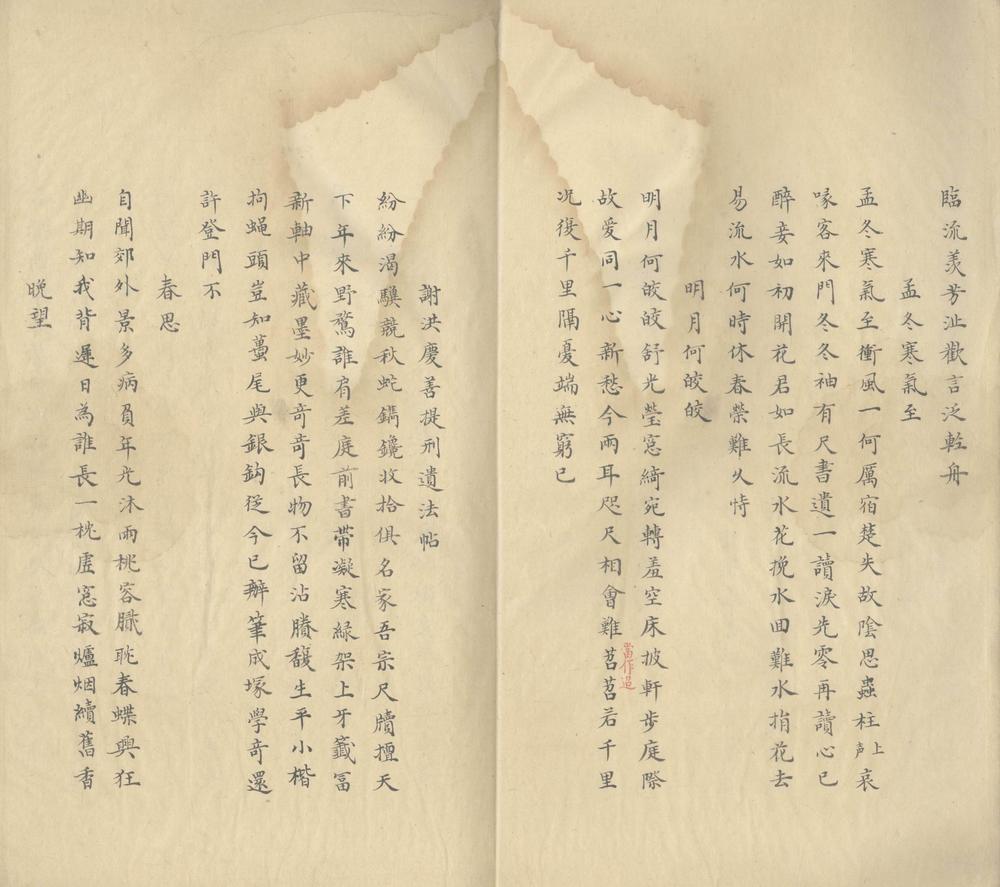 臨流羨芳沚歡言泛輕舟
孟冬寒氣至
孟冬寒氣至衝風一何厲宿楚失故陰思蟲柱上声哀
喙客來門冬冬袖有尺書遺一讀淚先零再讀心已
醉妾如初開花君如長流水花挽水回難水捎花去
易流水何時休春榮難久恃
明月何皎皎
明月何皎皎舒光瑩窓綺宛轉羞空床披軒步庭際
故爱同一心新愁今兩耳咫尺相會難苕苕若千里
當作迢
况復千里隔憂端無窮已
謝洪慶善提刑遺法帖
紛紛渴驥競秋蛇鐫鑱收拾俱名家吾宗尺牘擅天
下年來野鶩誰肩差庭前書帶凝寒緑架上牙籤冨
新軸中藏墨妙更竒竒長物不留沾賸馥生平小楷
拘蝇頭豈知蠆尾與銀鈎從今已辦筆成塚學竒還
許登門不
春思
自聞郊外景多病負年光沐雨桃容膩眈春蝶興狂
幽期知我背遲日為誰長一枕虛窓寂爐烟續舊香
晚望